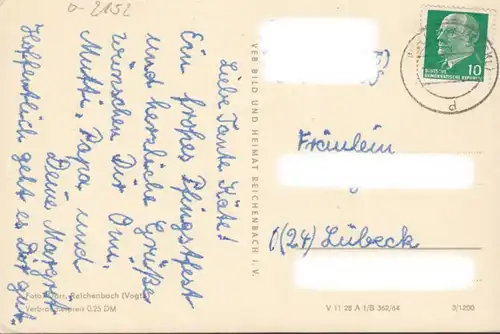 D-2152
Liebe Tante Käte!
Ein frohes Pfingstfest
und herzliche Grüße
wünschen Dir Omi,
Mutti, Papa und
Deine Margrit
Hoffentlich geht es Dir gut.
Reichenbach (Vogtl
Verbraucherpreis 0,25 DM
VEB BILD UND HEIMAT REICHENBACH I. V.
10
DEUTSCHE
DEMOKRATISCHE REPUBLIK
d
Fräulein
(24) Lübeck
V 11 28 A 1/B 362/64
3/1200